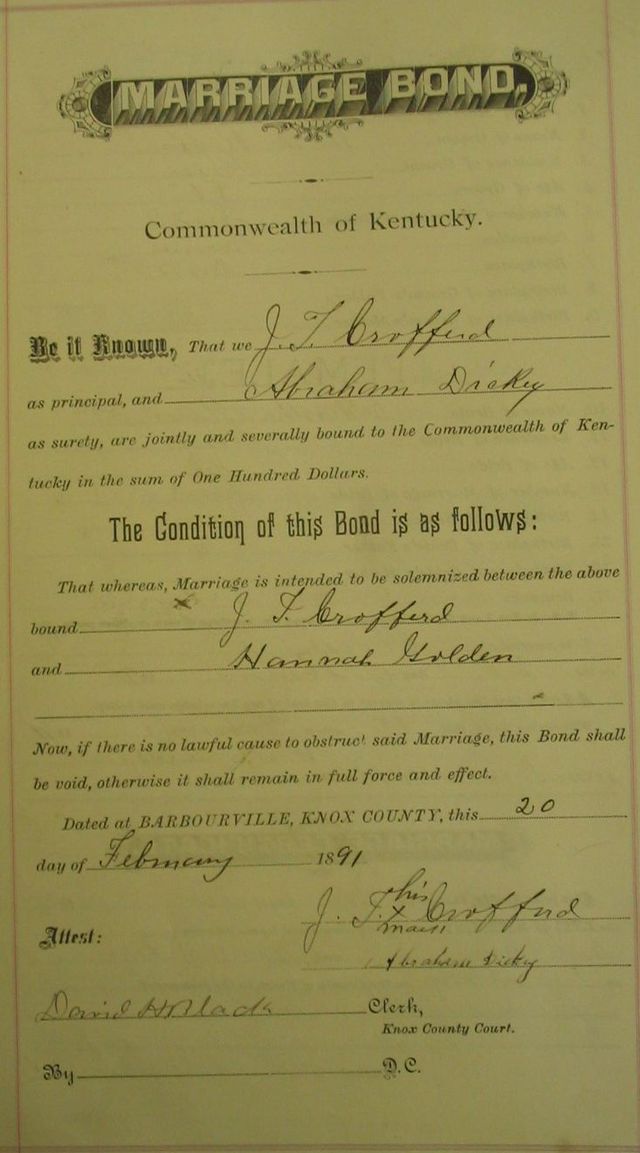 MARRIAGE BOND,
Commonwealth of Kentucky.
Be it Known, That we J. T. Crofferd
as principal, and Abraham Dickey
as surety, are jointly and severally bound to the Commonwealth of Ken-
tucky in the sum of One Hundred Dollars.
The Condition of this Bond is as follows:
That whereas, Marriage is intended to be solemnized between the above
bound J. T. Crofferd
and Hannah Golden
Now, if there is no lawful cause to obstruct said Marriage, this Bond shall
be void, otherwise it shall remain in full force and effect.
Dated at BARBOURVILLE, KNOX COUNTY, this 20
day of February 1891
his
J. T. x Crofferd
mark
Attest:
Abraham Dickey
David H Clerk,
Knox County Court.
By D.C.